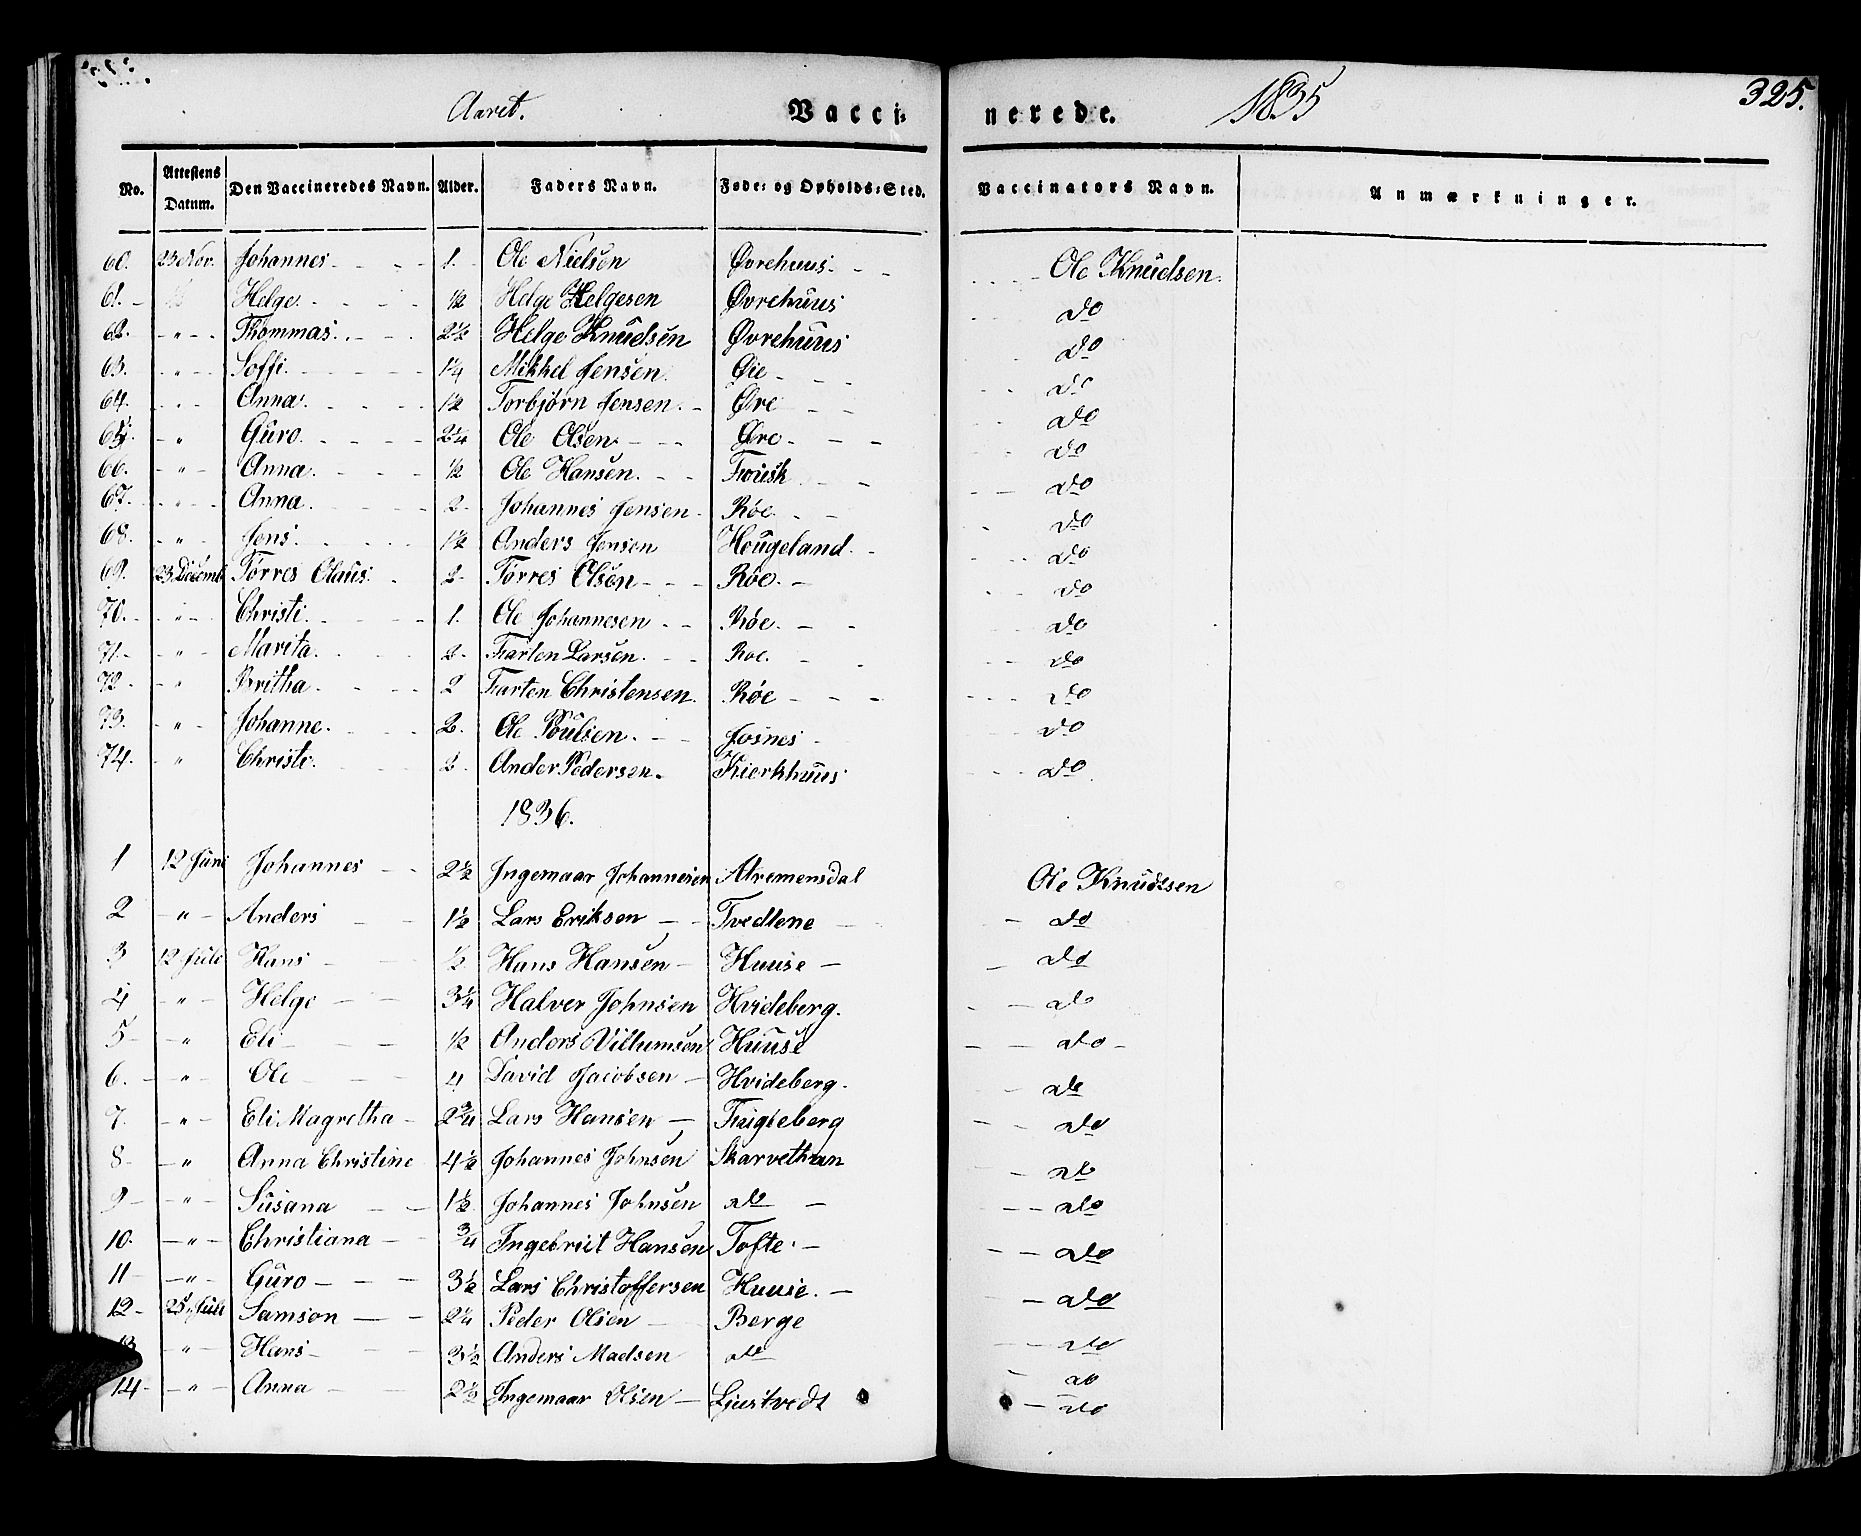 Aaret. Vacci- nerede. 1835 325.
No. Attestens Datum. Den Vaccineredes Navn. Alder. Faders Navn. Føde- og Opholds-Sted. Vaccinators Navn. Anmærkninger.
60. 23 Nov. Johannes 1. Ole Nielsen Øvrehuus Ole Knudsen.
61. Helge ½ Helge Helgesen Øvrehuus do
62. " Thommas 2½ Helge Knudsen Øvrehuus do
63. " Soffi 1¼ Mikkel Jensen Øie do
64. " Anna 1½ Torbjørn Jensen Øre do
65. " Guro 2¼ Ole Olsen Øre do
66. " Anna ½ Ole Hansen do
67. " Anna 2 Johannes Jensen Røe do
68. " Jens 1½ Anders Jensen Hougeland do
69. 23 Decemb Tørres Olaus 2 Tørres Olsen Røe do
70. " Christi 1. Ole Johannesen Røe do
71. " Marita 2 Tarten Larsen Roe do
72. " Britha 2 Tarten Christensen Røe do
73. " Johanne 2. Ole Poulsen Josnes do
74. " Christi 2 Ander Pedersen Kierkhuus do
1836.
1 12 Juni Johannes 2½ Ingemaar Johannesen Ole Knudsen
2 " Anders 1½ Lars Eriksen Tvedtene do
3 12 Juli Hans ½ Hans Hansen Huuse do
4 " Helge 3¼ Halver Johnsen Hvideberg. do
5 " Eli ½ Anders Villumsen Huuse do
6. " Ole 4 David Jacobsen Hvideberg. do
7. " Eli Magretha 2¾ Lars Hansen Fugleberg do
8 " Anna Christine 4½ Johannes Johnsen Skarvethun do
9 " Susana 1½ Johannes Johnsen do do
10. " Christiana ¾ Ingebrict Hansen Tofte do
11 " Guro 3½ Lars Christoffersen Huuse. do
12 25 Juli Samson 2¼ Peder Olsen Berge do
13 " Hans 3½ Anders Madsen do do
14 " Anna 2½ Ingemaar Olsen Ljustvedt do